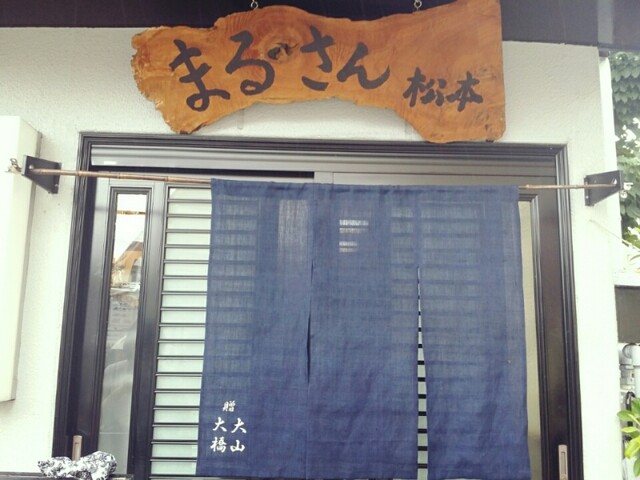 まるさん 松本
贈
大山
大橋